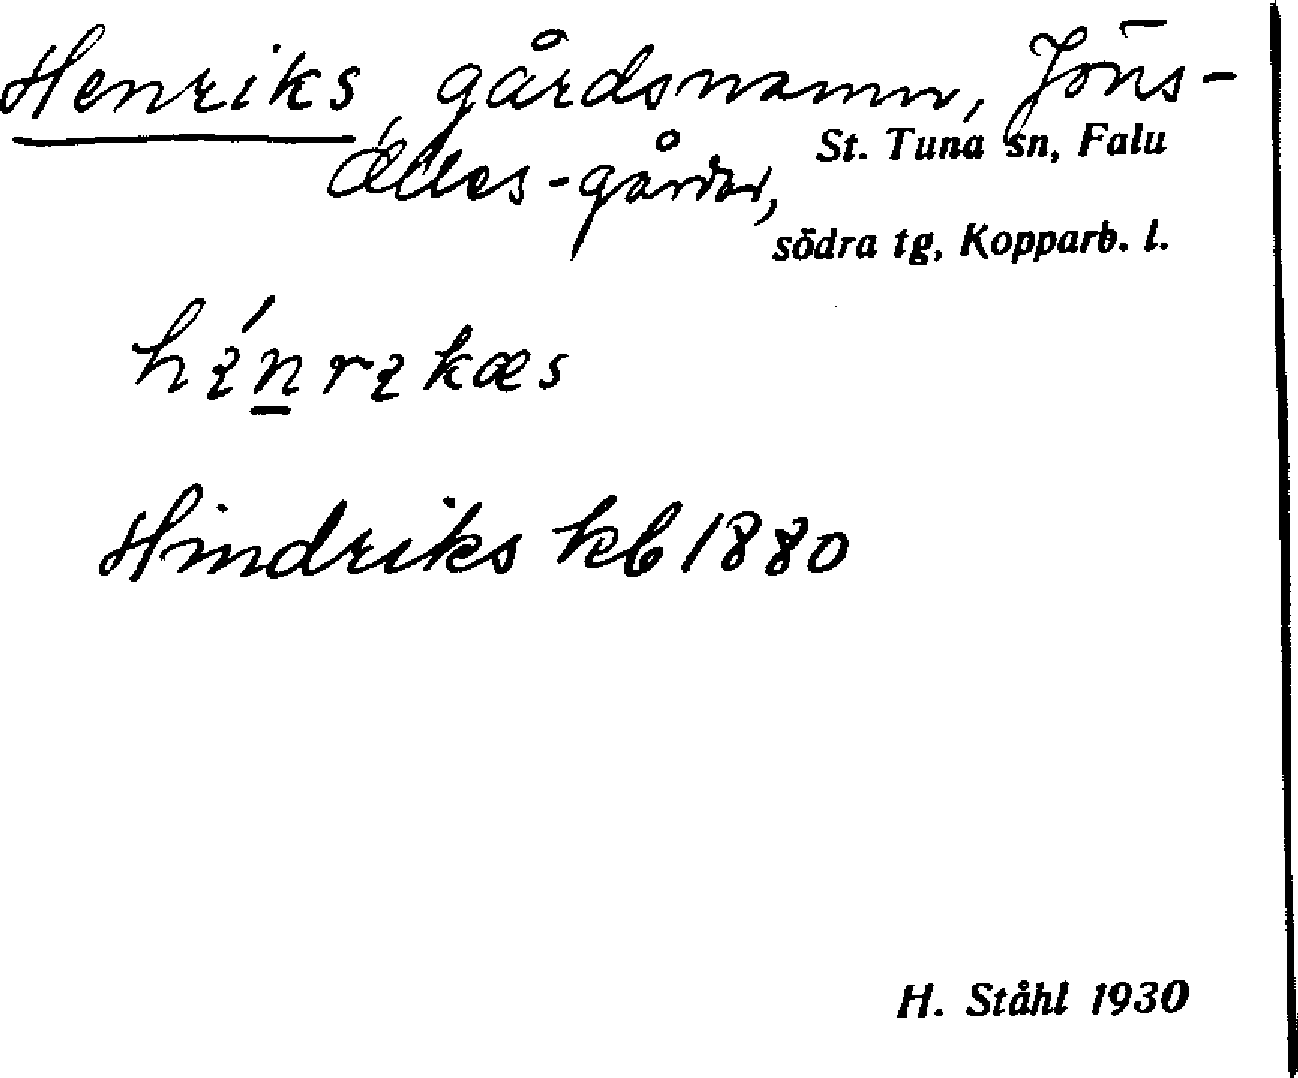 Henriks, gårdsnamn, Jöns-
Olles-gårdar, St. Tuna sn, Falu
södra tg, Kopparb. l.
Hindriks kb 1880
H. Ståhl 1930